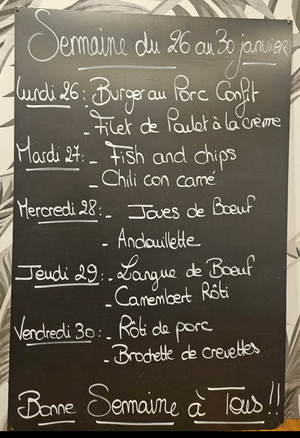 Semaine du 26 au 30 janvier
Lundi 26 : Burger au Porc Confit
- Filet de Poulet à la crème
Mardi 27 : - Fish and chips
- Chili con carné
Mercredi 28 : - Joues de Boeuf
- Andouillette
Jeudi 29 : - Langue de Boeuf
- Camembert Rôti
Vendredi 30 : - Rôti de porc
- Brochette de crevettes
Bonne Semaine à Tous !!